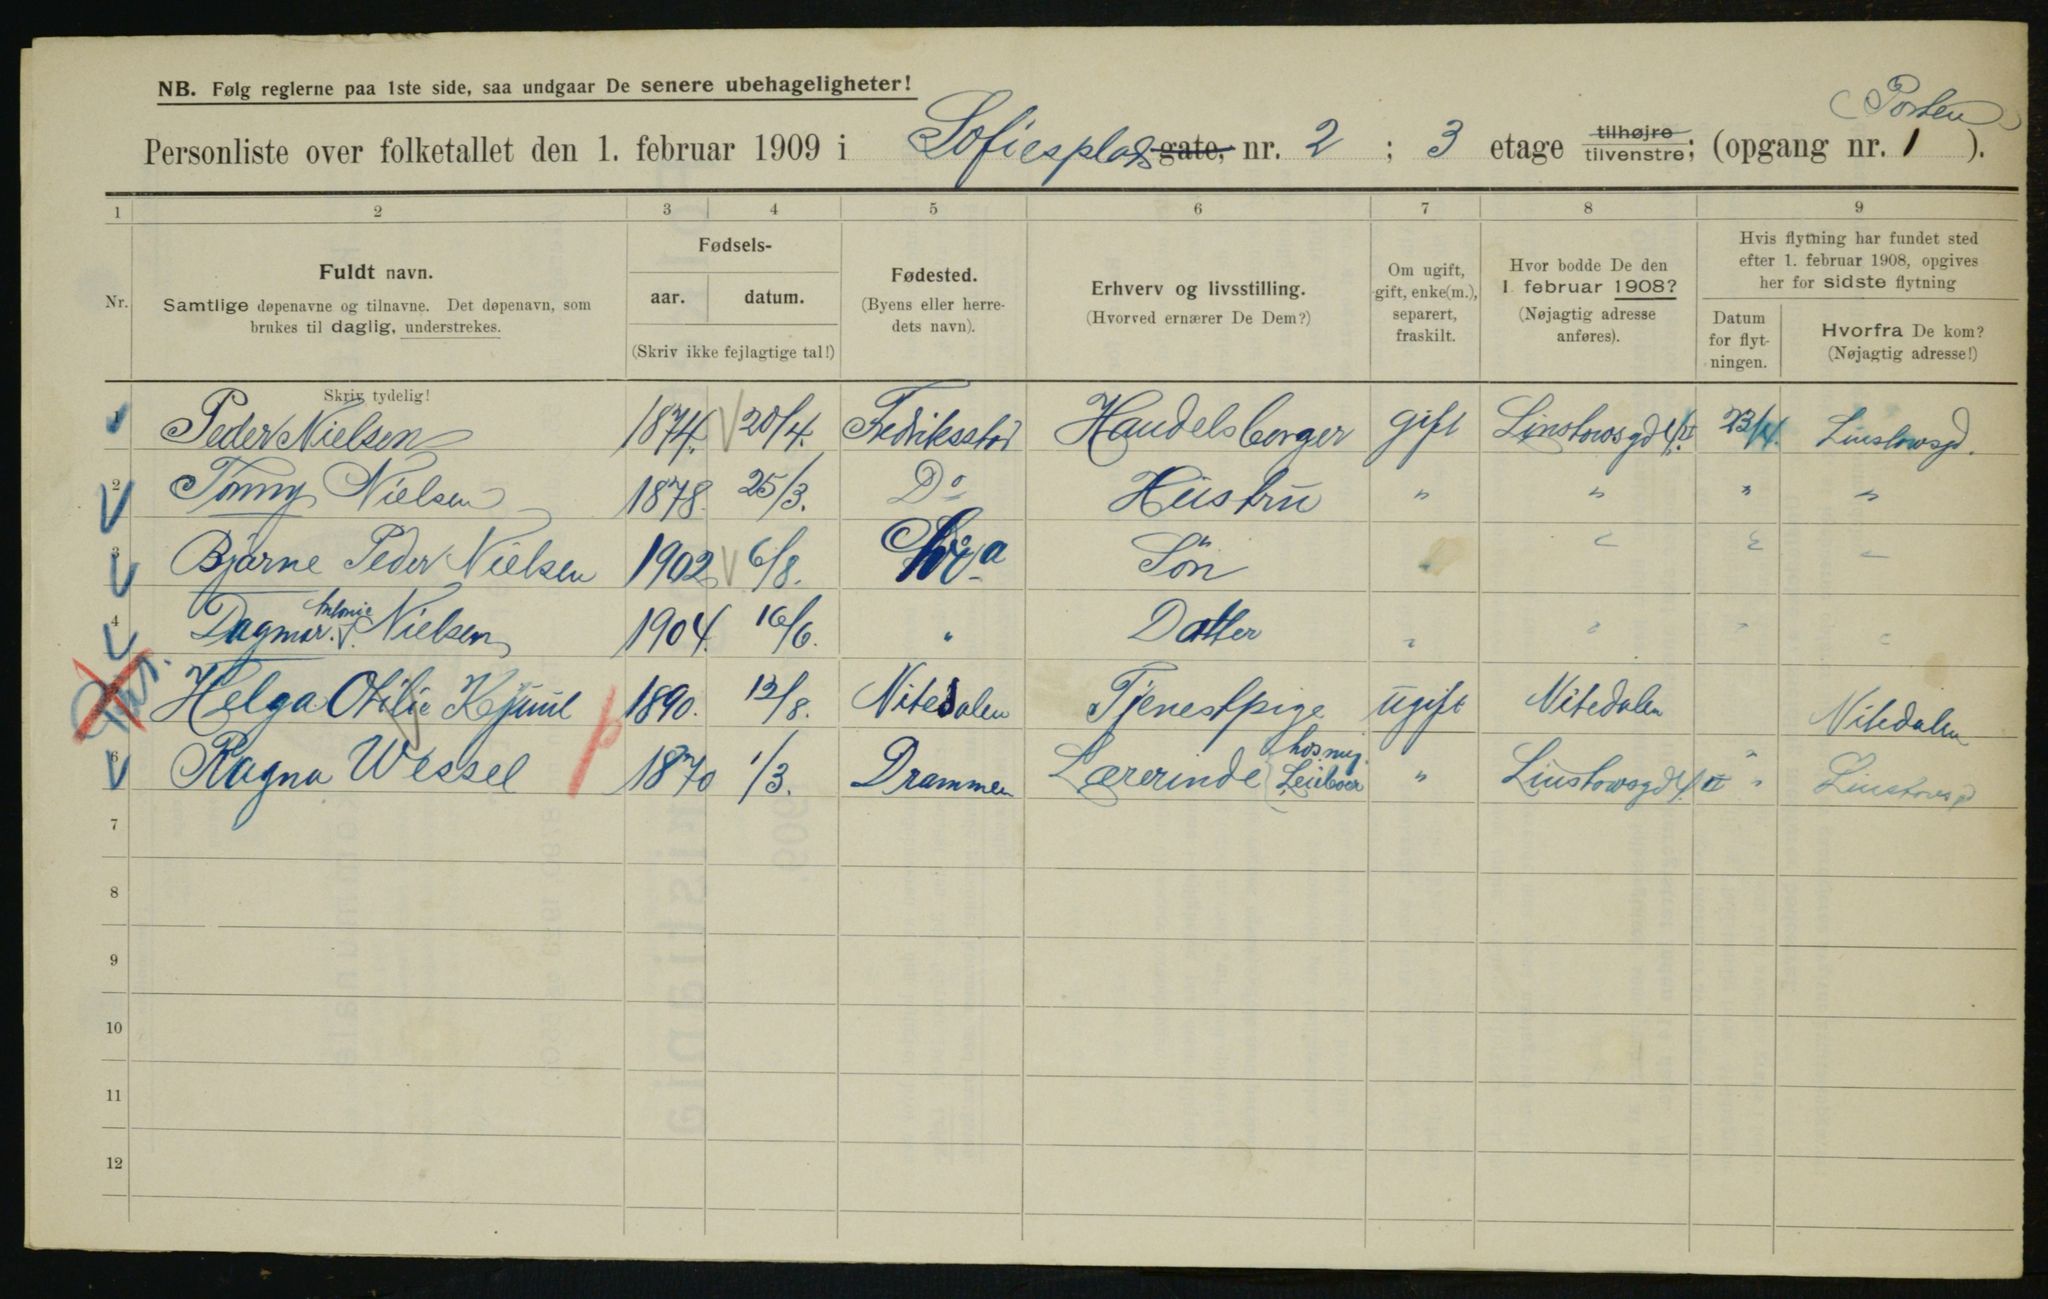 NB. Følg reglerne paa 1ste side, saa undgaar De senere ubehageligheter!
(Porten)
Personliste over folketallet den 1. februar 1909 i Sofiesplads gate, nr. 2 ; 3 etage tilhøjre tilvenstre; (opgang nr. 1 ).
1 2 3 4 5 6 7 8 9
Nr.
Fuldt navn.
Samtlige døpenavne og tilnavne. Det døpenavn, som
brukes til daglig, understrekes.
Fødsels-
aar. datum.
(Skriv ikke fejlagtige tal!)
Fødested.
(Byens eller herre-
dets navn).
Erhverv og livsstilling.
(Hvorved ernærer De Dem?)
Om ugift,
gift, enke(m.),
separert,
fraskilt.
Hvor bodde De den
1. februar 1908?
(Nøjagtig adresse
anføres).
Hvis flytning har fundet sted
efter 1. februar 1908, opgives
her for sidste flytning
Datum
for flyt-
ningen.
Hvorfra De kom?
(Nøjagtig adresse!)
Skriv tydelig!
1 Peder Nielsen 1874. 20/4. Fredriksstad Handelsborger gift Linstowsgd 4/II 23/4. Linstowsgd.
2 Tonny Nielsen 1878. 25/3. Do Hustru " " " "
3 Bjarne Peder Nielsen 1902 6/8. Kr.a Søn
4 Dagmar Antonie Nielsen 1904. 16/6. " Datter " " " "
Helga Otilie Kjuul 1890. 12/8. Nitedalen Tjenestpige ugift Nitedalen Nitedalen
6 Ragna Wessel 1870 1/3. Drammen Lærerinde (hos mig Leieboer " Linstowsgd 4/II " Linstowsgd
7
8
9
10
11
12